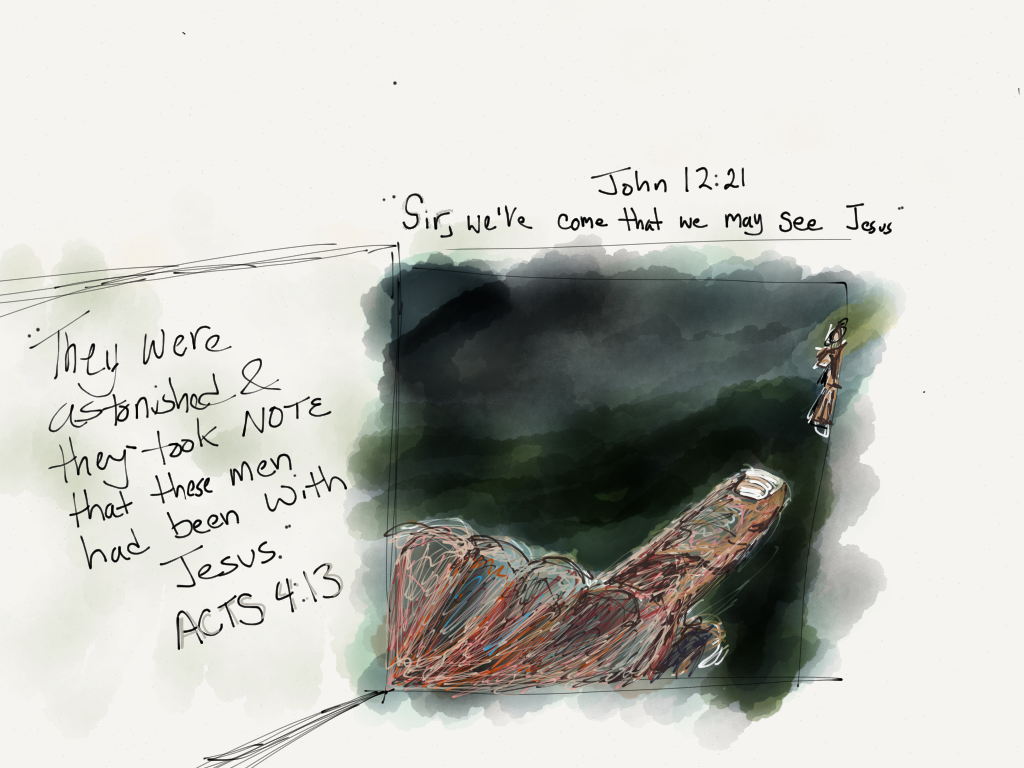 John 12:21
"Sir, we've come that we may see Jesus"
"They were
astonished &
they took NOTE
that these men
had been with
Jesus."
ACTS 4:13